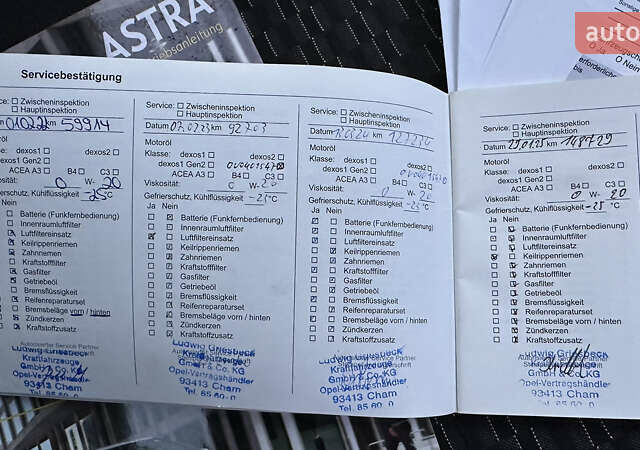 ASTRA
Betriebsonleitung
auto
O Ja O Nein
bis
Servicebestätigung
Zwischeninspektion
Hauptinspektion
010222 km 59914
Motoröl
dexos1 dexos2
dexos1 Gen2
ACEA A3 B4 C3
Viskosität: 0 W- 20
Gefrierschutz, Kühlflüssigkeit
-25°C
Nein
Batterie (Funkfernbedienung)
Innenraumluftfilter
Luftfiltereinsatz
Keilrippenriemen
Zahnriemen
Kraftstofffilter
Gasfilter
Getriebeöl
Bremsflüssigkeit
Reifenreparaturset
Bremsbeläge vorn / hinten
Zündkerzen
Kraftstoffzusatz
Ludwig Griesbeck
Kraftfahrzeuge
GmbH & Co. KG
Opel-Vertragshändler
93413 Cham
Service: Zwischeninspektion
Hauptinspektion
Datum 07.02.23 km 92703
Motoröl
Klasse: dexos1 dexos2
dexos1 Gen2
ACEA A3 B4 C3
Viskosität: 0 W- 20
Gefrierschutz, Kühlflüssigkeit -25 °C
Ja Nein
Batterie (Funkfernbedienung)
Innenraumluftfilter
Luftfiltereinsatz
Keilrippenriemen
Zahnriemen
Kraftstofffilter
Gasfilter
Getriebeöl
Bremsflüssigkeit
Reifenreparaturset
Bremsbeläge vorn / hinten
Zündkerzen
Kraftstoffzusatz
Ludwig Griesbeck
Kraftfahrzeuge
GmbH & Co. KG
Opel-Vertragshändler
93413 Cham
Service: Zwischeninspektion
Hauptinspektion
Datum km
Motoröl
Klasse: dexos1 dexos2
dexos1 Gen2
ACEA A3 B4 C3
Viskosität: 0 W- 20
Gefrierschutz, Kühlflüssigkeit -25 °C
Ja Nein
Batterie (Funkfernbedienung)
Innenraumluftfilter
Luftfiltereinsatz
Keilrippenriemen
Zahnriemen
Kraftstofffilter
Gasfilter
Getriebeöl
Bremsflüssigkeit
Reifenreparaturset
Bremsbeläge vorn / hinten
Zündkerzen
Kraftstoffzusatz
Ludwig Griesbeck
Kraftfahrzeuge
GmbH & Co. KG
Opel-Vertragshändler
93413 Cham
Service: Zwischeninspektion
Hauptinspektion
Datum 29.01.25 km 148729
Motoröl
Klasse: dexos1 dexos2
dexos1 Gen2
ACEA A3 B4 C3
Viskosität: 0 W- 20
Gefrierschutz, Kühlflüssigkeit -25 °C
Ja Nein
Batterie (Funkfernbedienung)
Innenraumluftfilter
Luftfiltereinsatz
Keilrippenriemen
Zahnriemen
Kraftstofffilter
Gasfilter
Getriebeöl
Bremsflüssigkeit
Reifenreparaturset
Bremsbeläge vorn / hinten
Zündkerzen
Kraftstoffzusatz
Ludwig Griesbeck
Kraftfahrzeuge
GmbH & Co. KG
Opel-Vertragshändler
93413 Cham